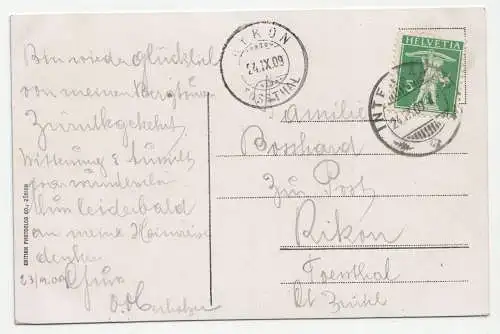 Bin wieder glücklich
von meiner Bergtour
Zurückgekehrt
Witterung & Aussicht
war wundervoll
Muss leider bald
an meine Heimreise
denken
23/9.09. Gruss
EDITION PHOTOGLOB CO., ZÜRICH
RIKON
24.IX.09
TÖSSTHAL
HELVETIA
5
INTE
24.IX.09
Familie
Bosshard
zur Post
Rikon
Toessthal
Ct Zürich